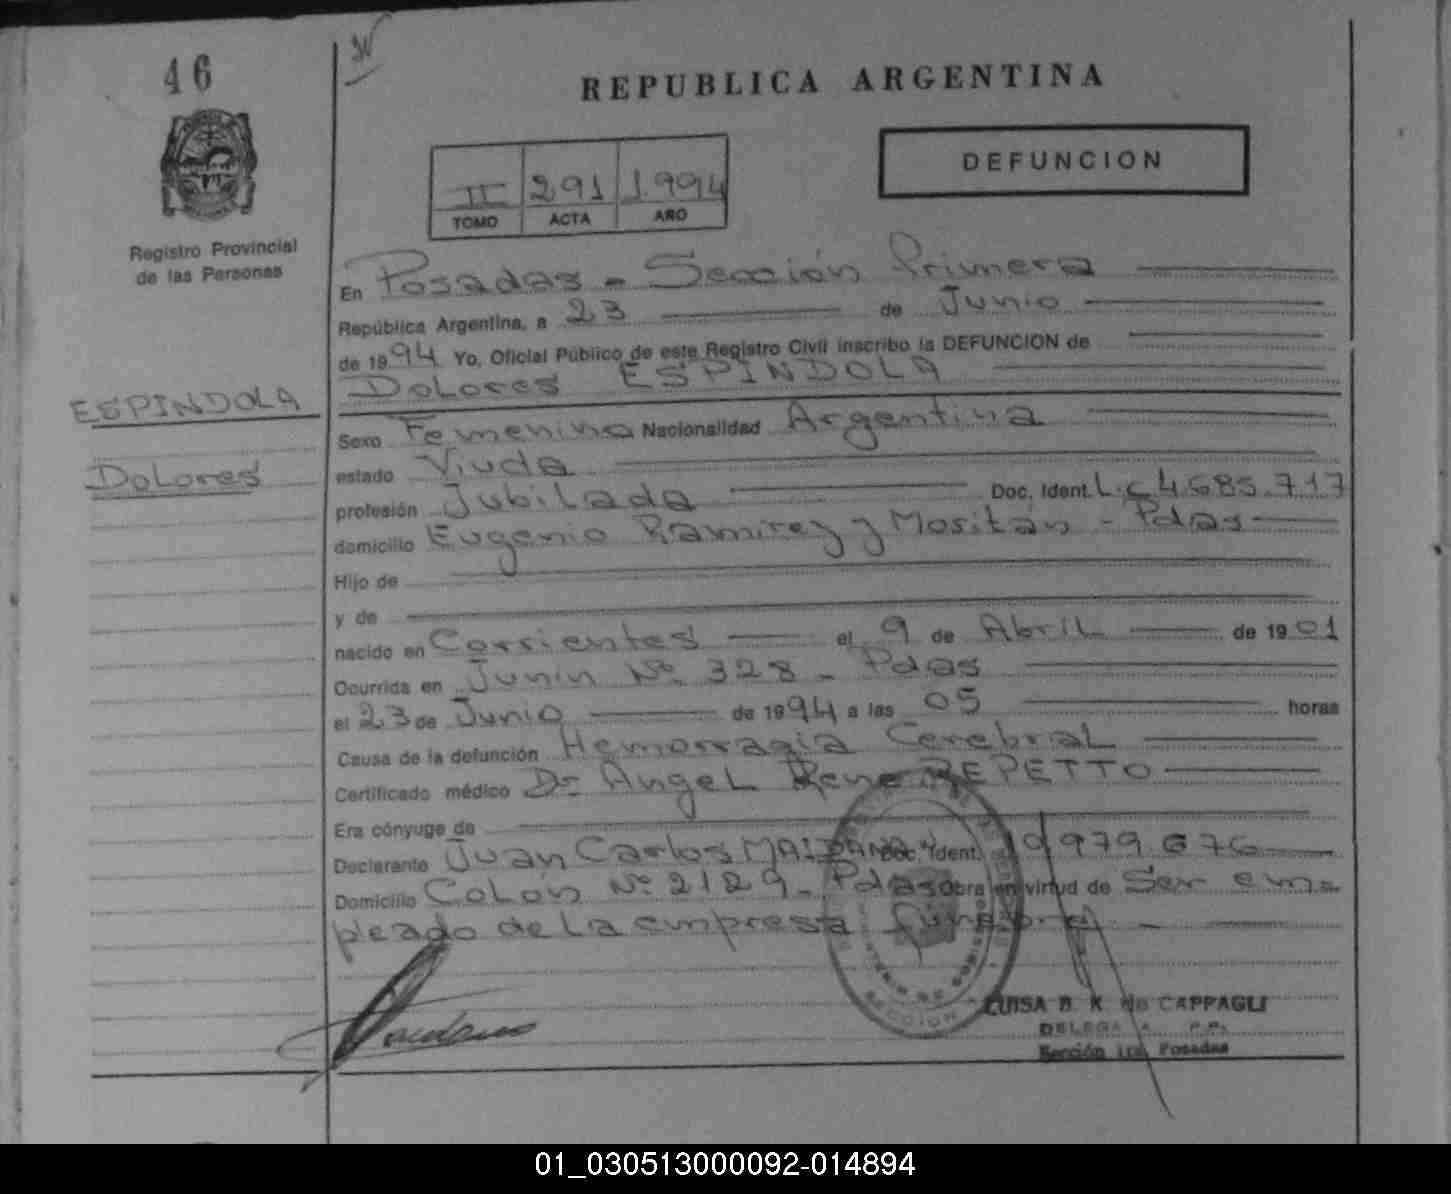 46
REPUBLICA ARGENTINA
DEFUNCION
II 291 1994
TOMO ACTA AÑO
Registro Provincial
de las Personas
En Posadas - Sección Primera
República Argentina, a 23 de Junio
de 1994 Yo, Oficial Público de este Registro Civil inscribo la DEFUNCION de
Dolores ESPINDOLA
ESPINDOLA
Dolores
Sexo Femenino Nacionalidad Argentina
estado Viuda
profesión Jubilada Doc. Ident. L.C 4.685.717
domicilio Eugenio Ramirez y Moritán - Pdas
Hijo de
y de
nacido en Corrientes el 9 de Abril de 1901
Ocurrida en Junin Nº 328 - Pdas
el 23 de Junio de 1994 a las 05 horas
Causa de la defunción Hemorragia Cerebral
Certificado médico Dr. Angel Rene REPETTO
Era cónyuge de
Declarante Juan Carlos MAIDANA Doc. Ident. 979 676
Domicilio Colón Nº 2129 - Pdas obra en virtud de Ser em-
pleado de la empresa funebre
SECCION
LUISA B. K. de CAPPAGLI
Sección 1ra. Posadas
01_030513000092-014894